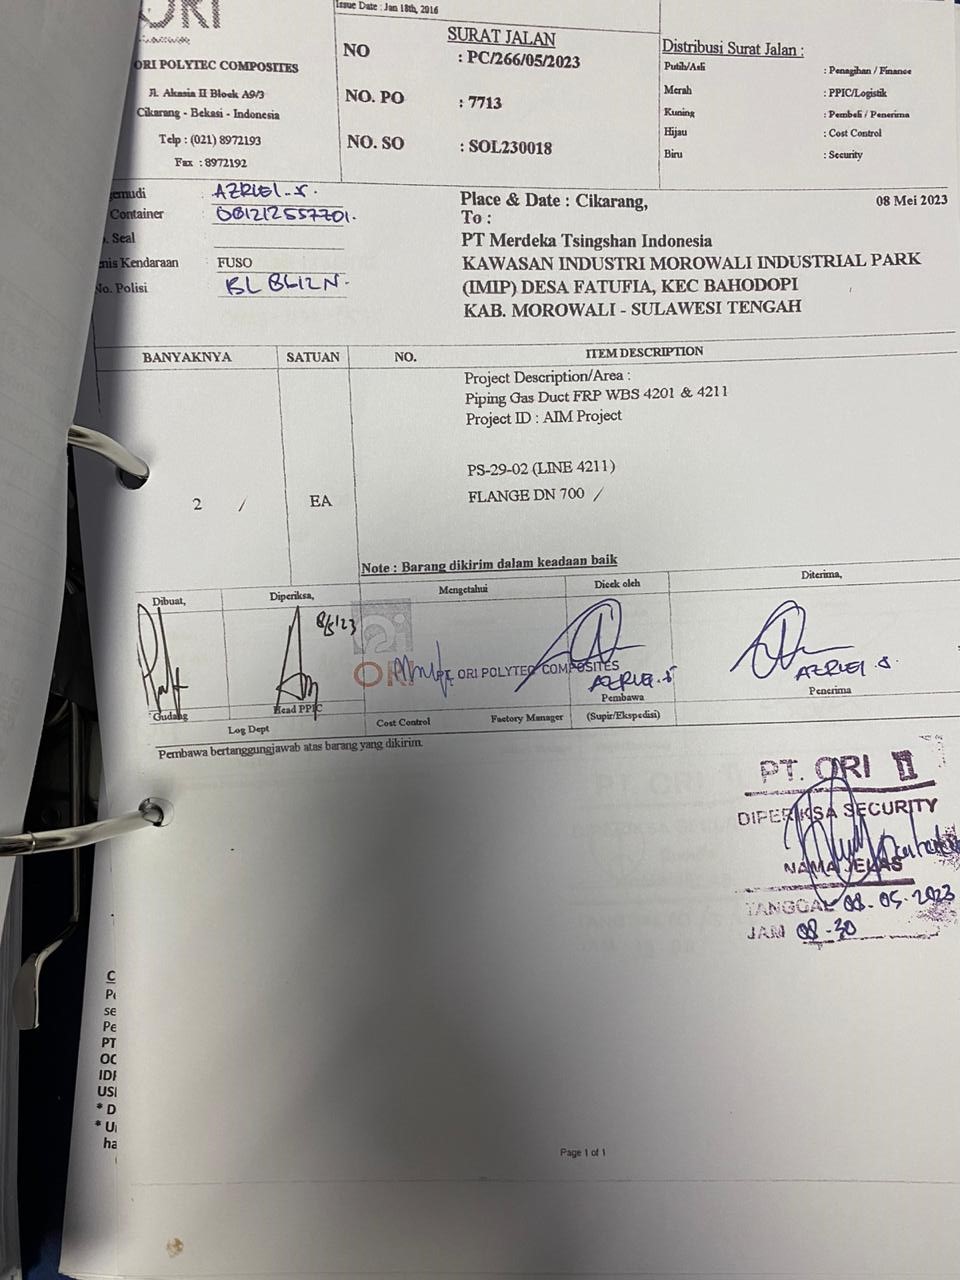 ORI
Issue Date : Jan 18th, 2016
ORI POLYTEC COMPOSITES
Jl. Akasia II Block A9/3
Cikarang - Bekasi - Indonesia
Telp : (021) 8972193
Fax : 8972192
SURAT JALAN
NO : PC/266/05/2023
NO. PO : 7713
NO. SO : SOL230018
Distribusi Surat Jalan :
Putih/Asli : Penagihan / Finance
Merah : PPIC/Logistik
Kuning : Pembeli / Penerima
Hijau : Cost Control
Biru : Security
emudi : AZRIEL.S.
Container : 081212557701.
. Seal
nis Kendaraan : FUSO
No. Polisi : BL 8412 N.
Place & Date : Cikarang, 08 Mei 2023
To :
PT Merdeka Tsingshan Indonesia
KAWASAN INDUSTRI MOROWALI INDUSTRIAL PARK
(IMIP) DESA FATUFIA, KEC BAHODOPI
KAB. MOROWALI - SULAWESI TENGAH
BANYAKNYA SATUAN NO. ITEM DESCRIPTION
Project Description/Area :
Piping Gas Duct FRP WBS 4201 & 4211
Project ID : AIM Project
PS-29-02 (LINE 4211)
2 / EA FLANGE DN 700 /
Note : Barang dikirim dalam keadaan baik
Dibuat, Diperiksa, Mengetahui Dicek oleh Diterima,
8/5/23
ORI
PT. ORI POLYTEC COMPOSITES
AZRIEL.S AZRIEL.S.
Gudang Head PPIC Pembawa Penerima
Log Dept Cost Control Factory Manager (Supir/Ekspedisi)
Pembawa bertanggungjawab atas barang yang dikirim.
PT. ORI II
DIPERIKSA SECURITY
NAMA JELAS
TANGGAL 08.05.2023
JAM 08.30
C
Pe
se
Pe
PT
OC
IDI
USI
* D
* U
ha
Page 1 of 1